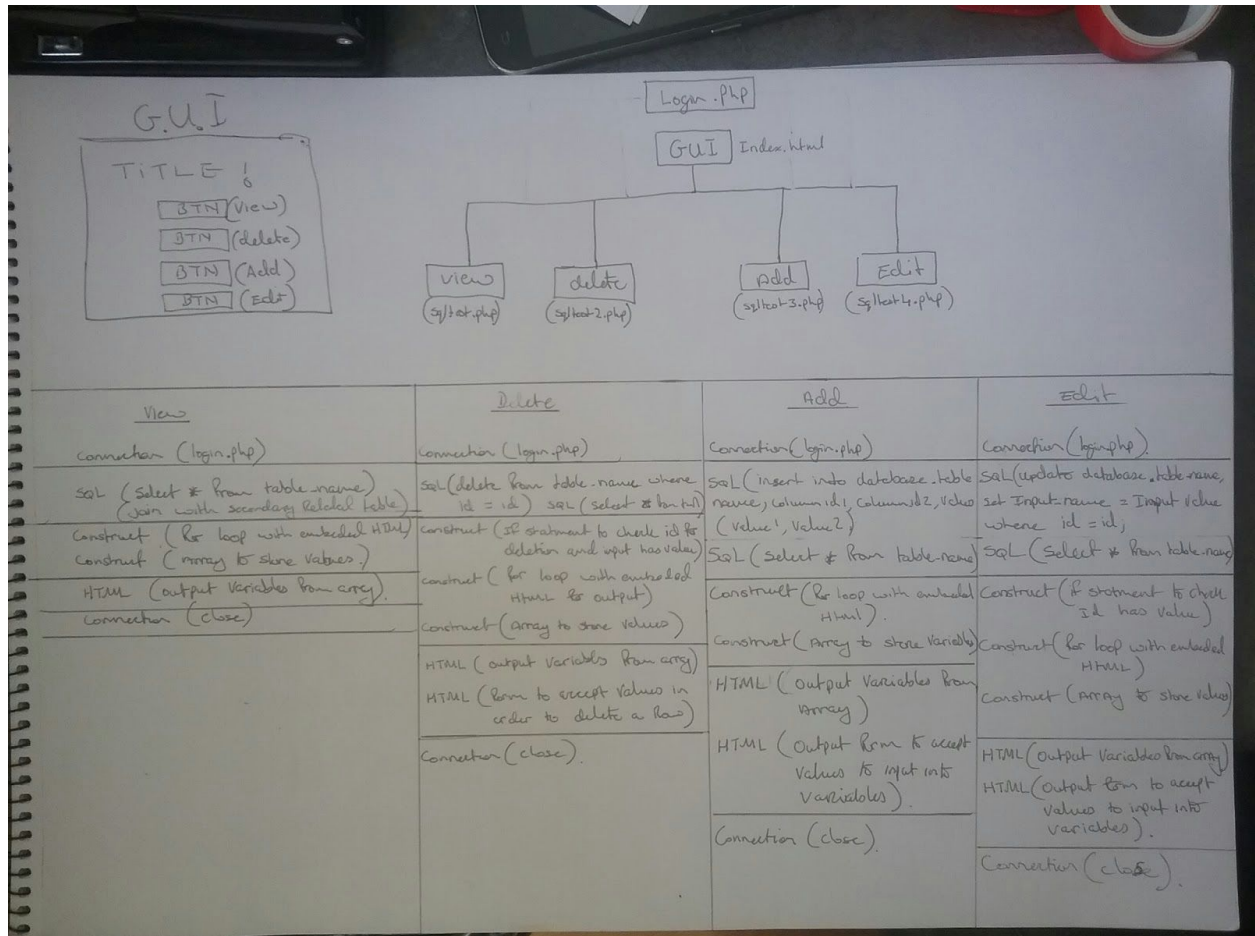 G.U.I
TITLE !
BTN (View)
BTN (delete)
BTN (Add)
BTN (Edit)
Login.php
GUI Index.html
view
(sqltest.php)
delete
(sqltest2.php)
Add
(sqltest3.php)
Edit
(sqltest4.php)
View
Connection (login.php)
SQL (Select * from table-name)
(join with secondary Related table)
Construct (for loop with embedded HTML)
Construct (Array to store Values.)
HTML (output Variables from array).
Connection (close)
Delete
Connection (login.php)
SQL (delete from table.name where
id = id) SQL (select * from
construct (If statment to check id for
deletion and input has value)
construct (for loop with embeded
HTML for output)
Construct (Array to store Values)
HTML (output Variables from array)
HTML (form to accept Values in
order to delete a Row)
Connection (close).
Add
Connection (login.php)
SQL (insert into database.table
name, column id1, Column id2, Value
(Value1, Value2)
SQL (select * from table-name)
Construct (for loop with embeded
Html).
Construct (Array to store Variable)
HTML (Output Variables from
Array)
HTML (Output form to accept
Values to input into
Variables).
Connection (close).
Edit
Connection (login.php).
SQL (update database.table name,
set Input-name = Input value
where id = id,
SQL (Select * from table.name)
Construct (if statment to check
Id has value)
Construct (for loop with embeded
HTML)
Construct (ARRAy to store values)
HTML (Output Variables from array)
HTML (Output form to accept
values to input into
variables).
Connection (close).